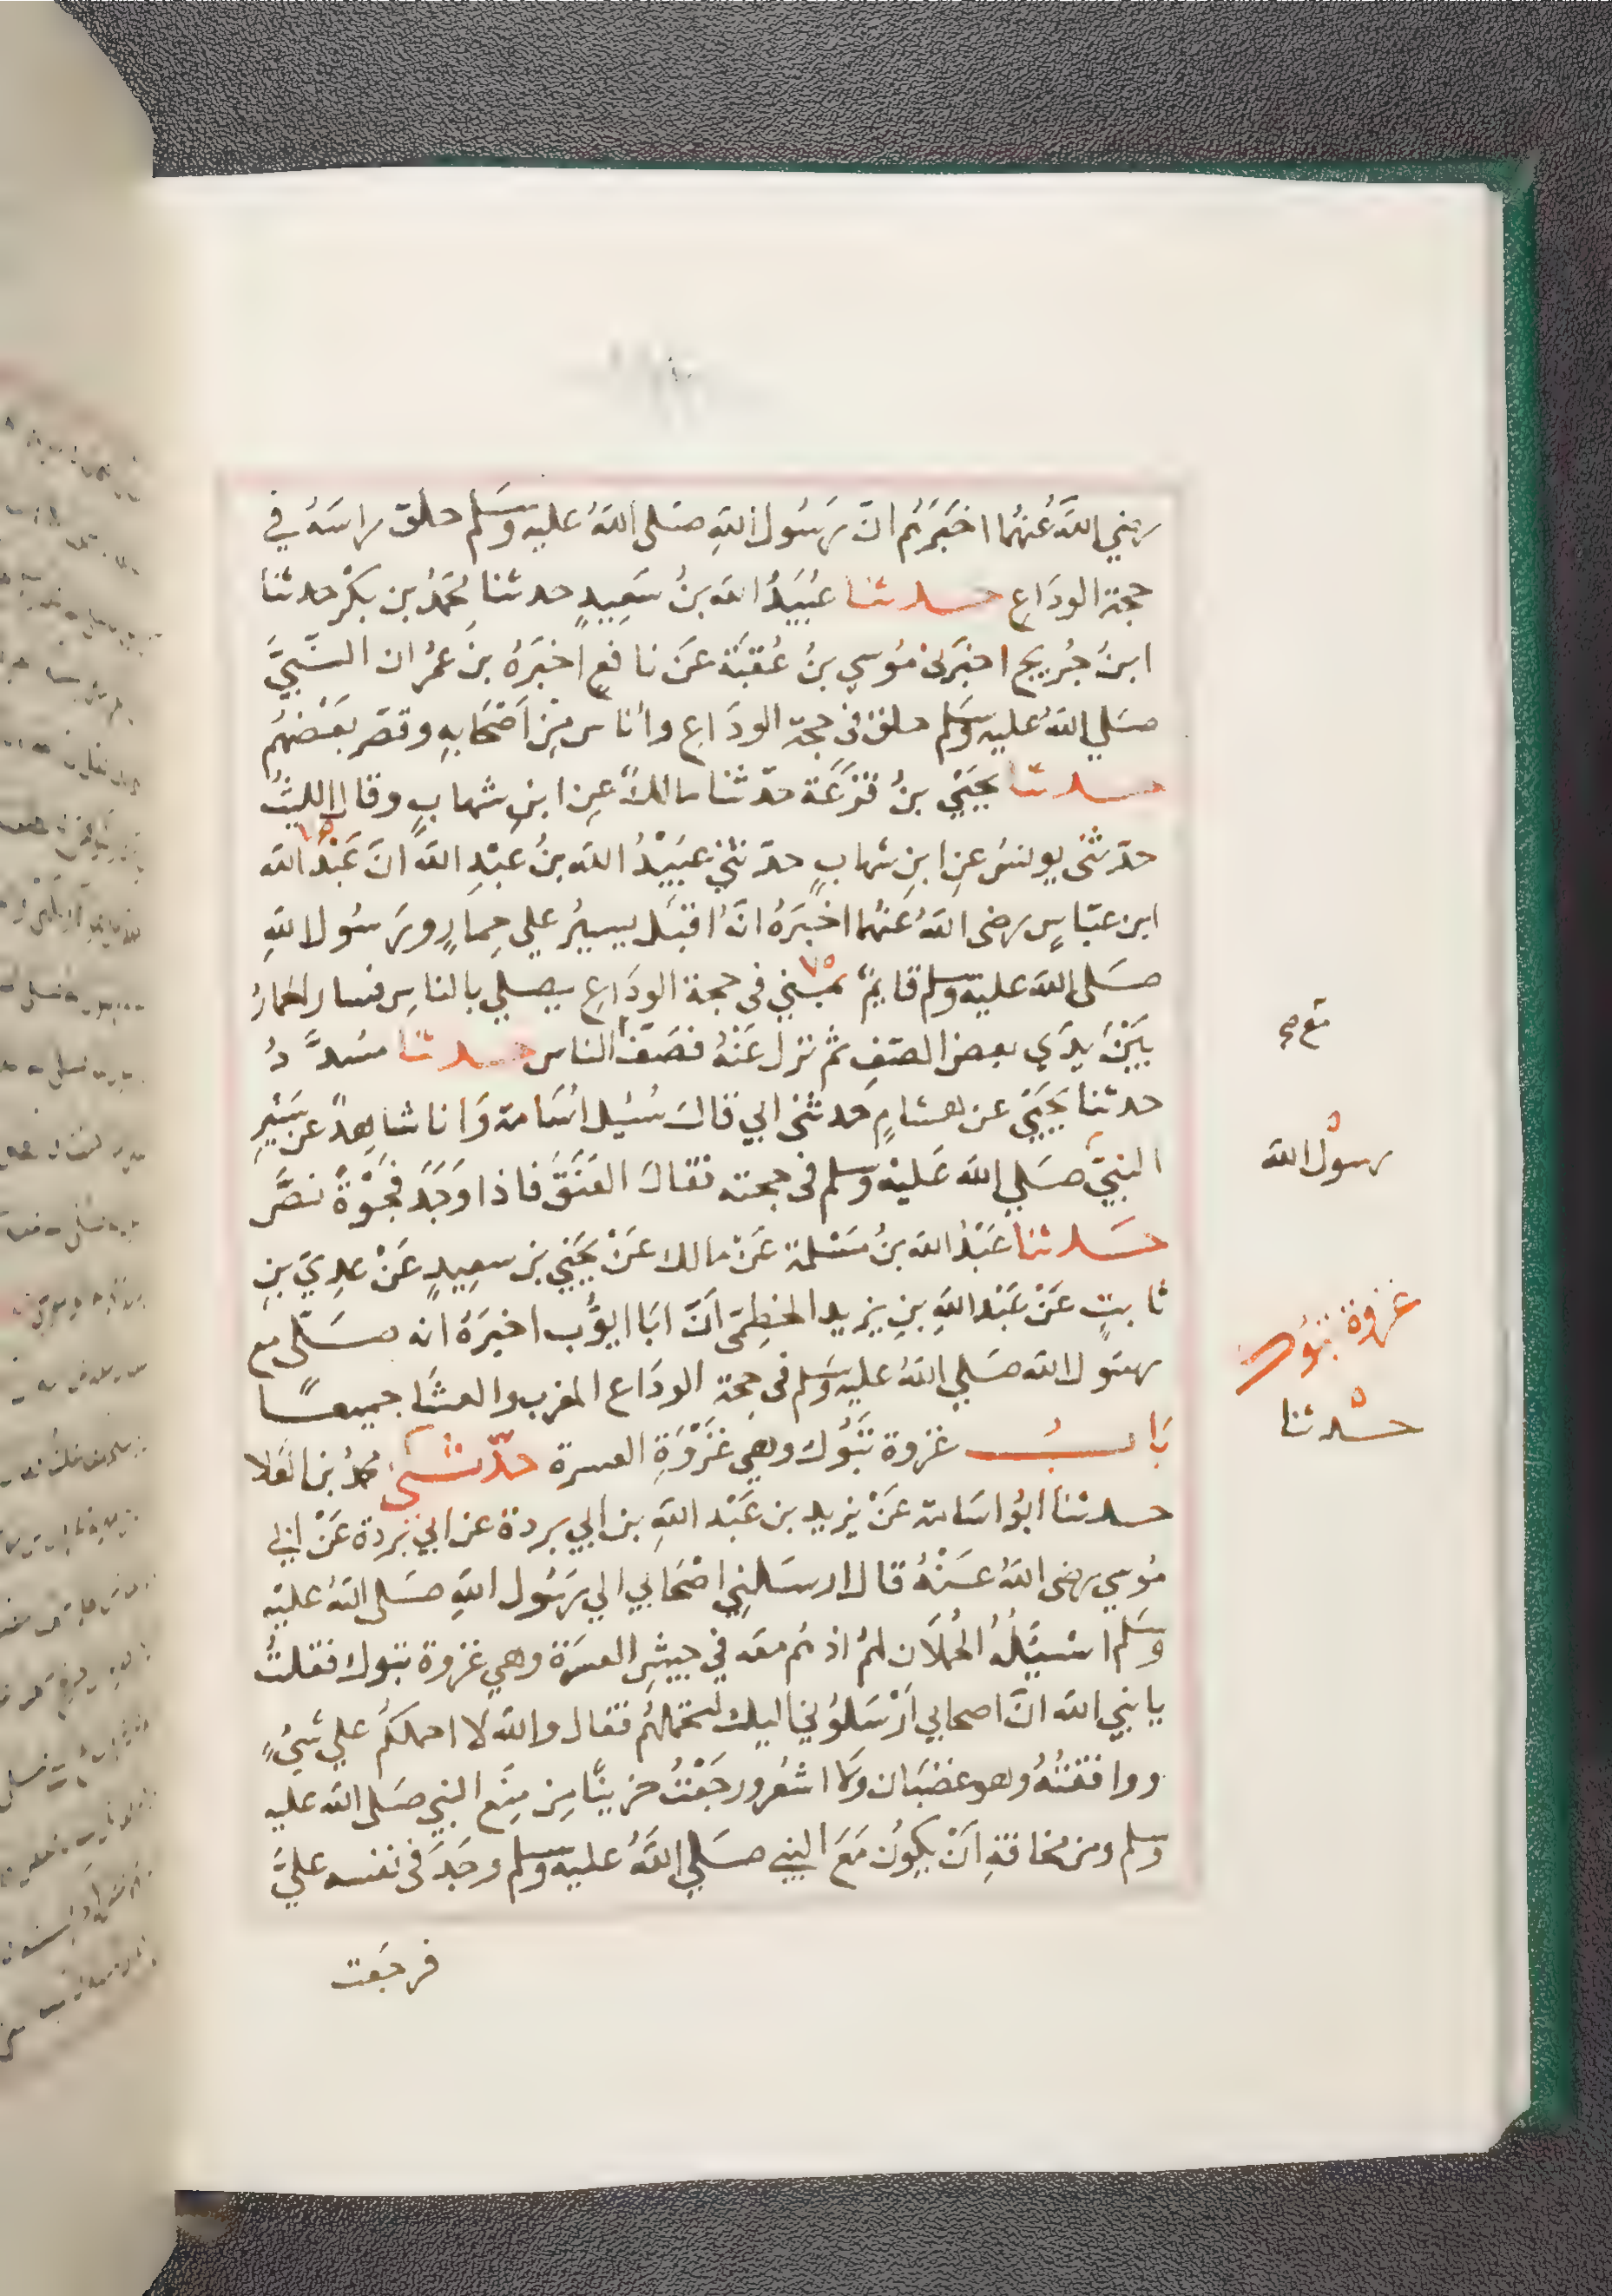 رضي اللَّهُ عُنهُما اخبَرَهُم انّ رَسُول اللهِ صَلى اللهُ عليه وسَلم حلق راسَهُ في
حجة الودَاعِ حدثنا عُبَيدُ الله بنُ سَعِيدٍ حدثنا محمدُ بن بكْر حدثنا
ابنُ جُريج اخبَرَنى مُوسي بنُ عُقبَة عَن نافعٍ اخبَرَهُ بن عمُر ان النَّبيَّ
صَلي اللهُ عليه وسَلم حلق فى حجة الودَاع واُناس مِن اَصْحَابِهِ وقصّر بعَضهُم
حدثنا يحَيَي بنُ قزَعَة حدّثنا مالكٌ عِن ابنِ شهابٍ وقال الليثُ
حدّثنى يونسُ عِن ابنِ شهابٍ حدّثني عبيْدُ الله بنُ عبْدِ الله انَّ عَبْدَ الله
ابن عبّاسٍ رضى اللهُ عَنهُما اخبَرَهُ انّهُ اقبَل يسيرُ علي حِمارٍ ورَسُول اللهِ
صَلى الله عليه وسلم قايمٌ بمِني فى حجة الودَاعِ يصلي بالناسِ فسار الحمارُ
بَيْنَ يدَي بعض الصّفِ ثم نزل عَنْهُ فصَفَّ الناس حدثنا مسَدَّدُ
حدثنا يَحيَي عن هشامٍ حَدثنى ابي قاك سُئِل اُسَامة وَانا شاهِدٌ عن سَيْرِ
النبيّ صَلي الله عَليْه وَسلم فى حجته فقاك العَنَقَ فاذا وَجَدَ فجْوَةً نصَّ
حَدثنا عَبْدُ الله بنُ مسْلمة عَن مالك عَنْ يحَيَي بن سعِيدٍ عَنْ عدِيّ بنِ
ثابتٍ عَنْ عَبْد اللهِ بنِ يزيد الخطِمىّ اَنَّ ابَا ايوُّب اخبَرَهُ انه صلّى مع
رسوُل الله صَلي اللهُ عليه وسَلم فى حجة الودَاع المغرب والعشَا جميعًا
بَابُ غزوة تبُوك وهي غَزْوَةِ العسرة حدّثنى محمدُ بن العَلا
حدثنا ابُو اسَامة عَنْ يزيد بن عَبْد اللهِ بن ابي بردة عن ابي بُردة عَنْ ابي
مُوسي رضى اللهُ عنْهُ قال ارسَلنِي اصْحَابي الي رسُول اللهِ صَلى اللهُ عليْه
وسَلم اسْئَلُهُ الحُملَان لهُم اذ هُم معَه في جيْشِ العسرَة وهي غزوة تبوك فقلتُ
يا نبي الله انّ اصحابي اَرْسَلوُني اليك لتحملهُم فقال والله لا احملكُم علي شيْءٍ
ووافقتُهُ وهو غضبَان وَلا اشعُر ورجَعْتُ حزينًا مِن مِنَع النبي صَلى الله عليه
وسلم ومن مخافةِ اَنْ يكوُن مَعَ النبي صَلي اللَّهُ عليه وَسلم وجَدَ فى نفسه عليَّ
فرجَعت
رسوْل الله
غزوة تبوُك
حدثنا